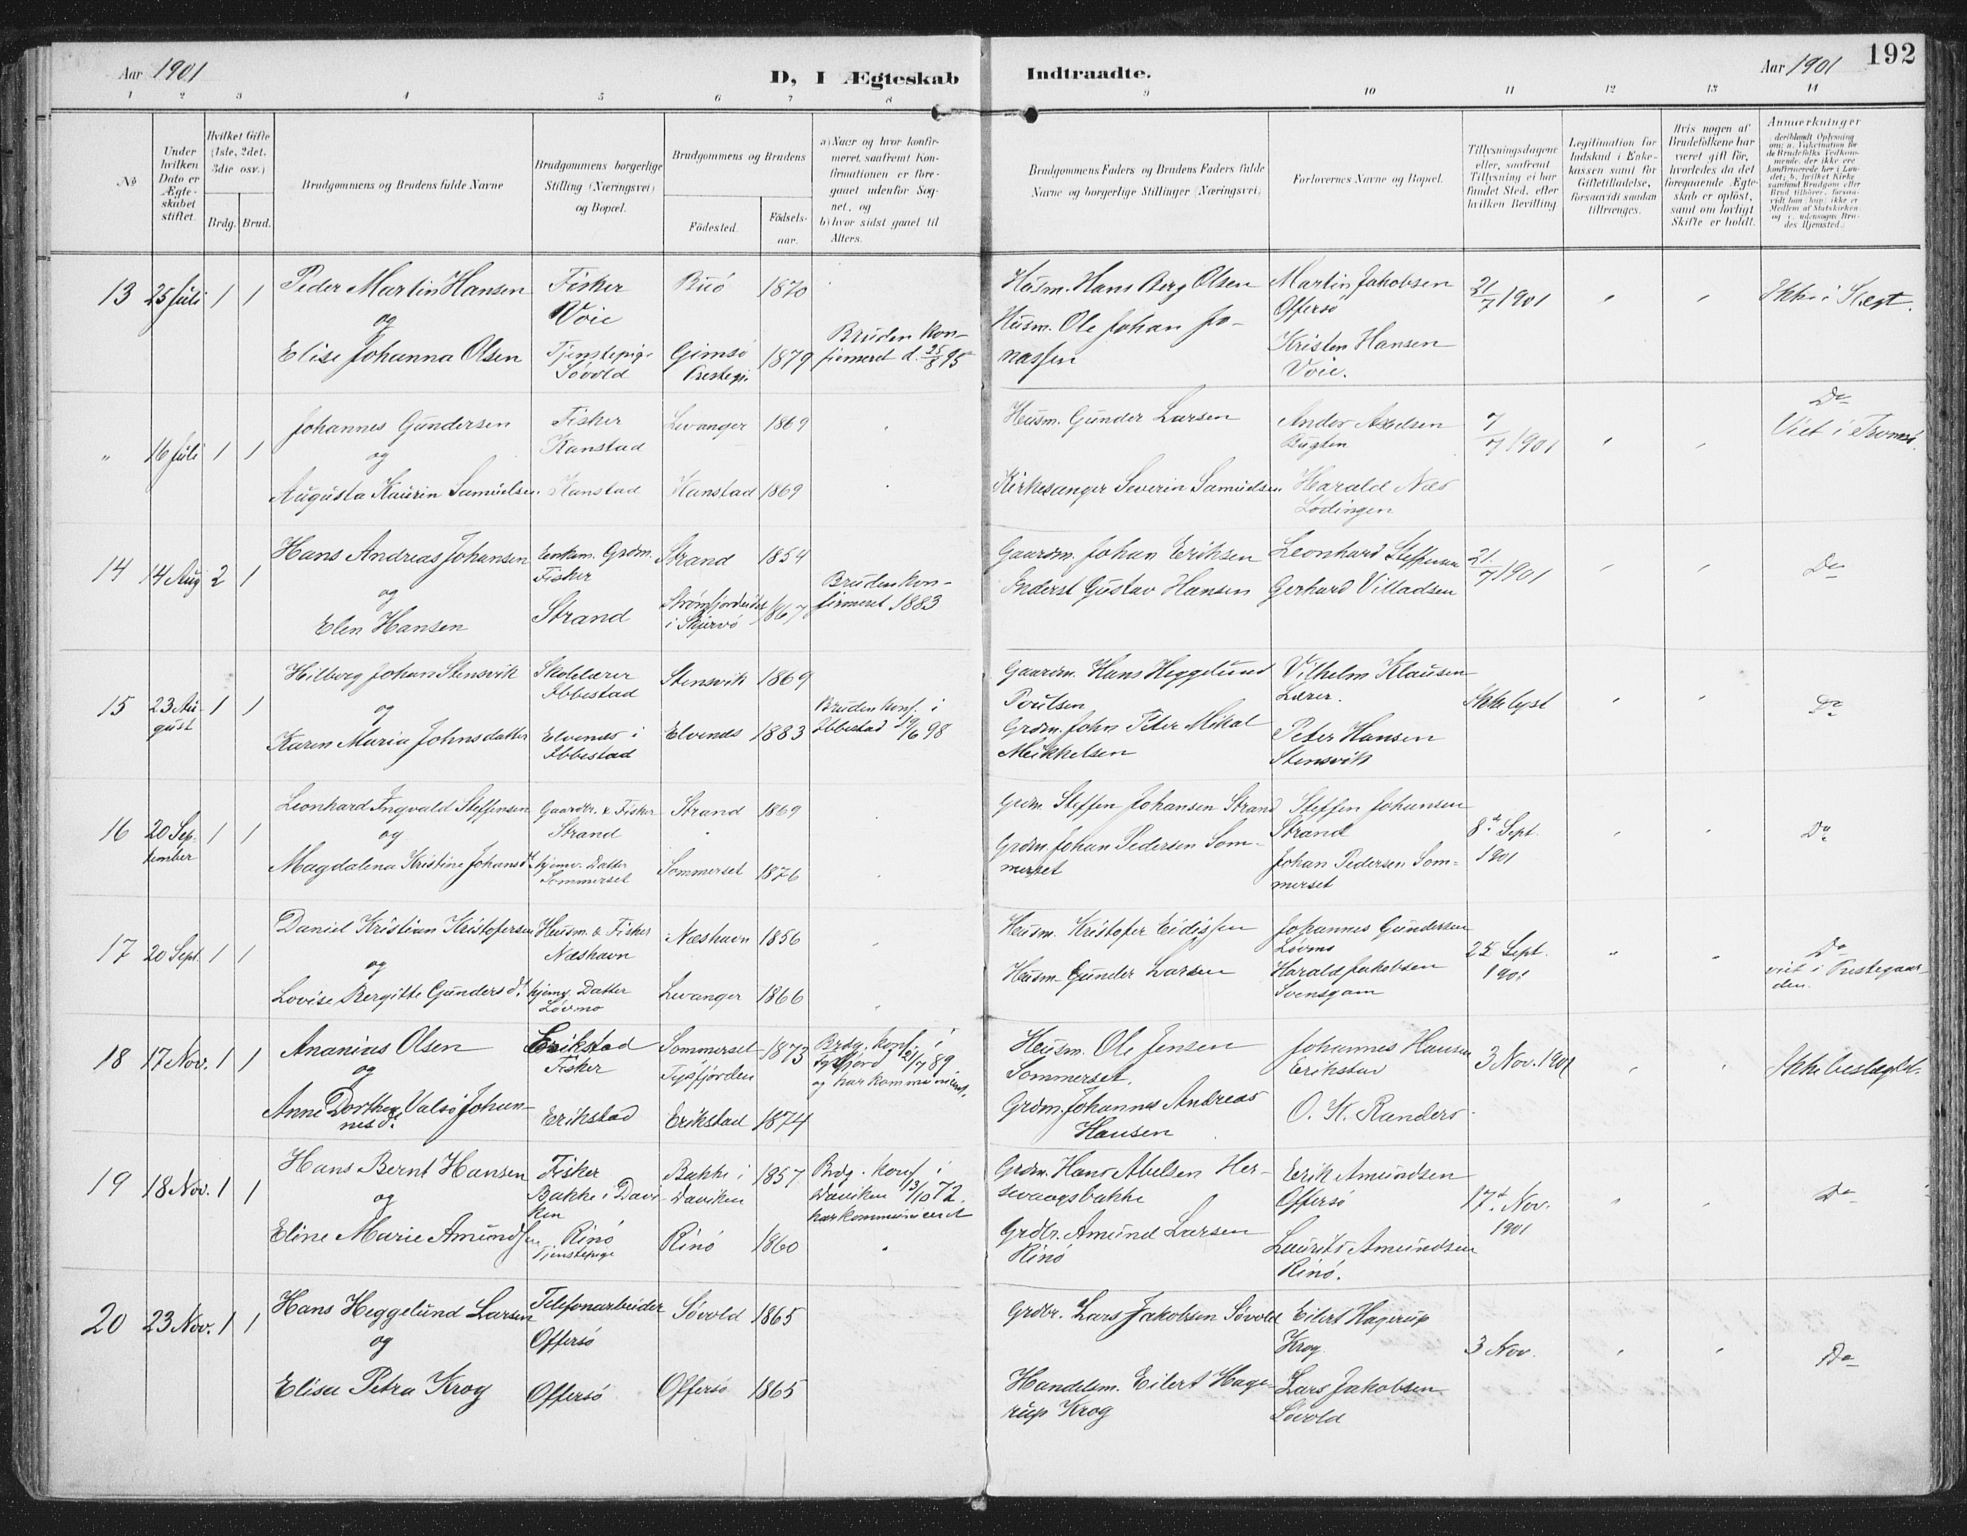 Aar 1901
D, I Ægteskab Indtraadte.
Aar 1901
192
1 2 3 4 5 6 7 8 9 10 11 12 13 14
No
Under hvilken Dato er Ægteskabet stiftet.
Hvilket Gifte (1ste, 2det, 3die osv.)
Brdg. Brud.
Brudgommens og Brudens fulde Navne
Brudgommens borgerlige Stilling (Næringsvei) og Bopæl.
Brudgommens og Brudens
Födested.
Födselsaar.
a) Naar og hvor konfirmeret, saafremt Konfirmationen er foregaaet udenfor Sognet, og
b) hvor sidst gaaet til Alters.
Brudgommens Faders og Brudens Faders fulde Navne og borgerlige Stillinger (Næringsvei)
Forlovernes Navne og Bopæl.
Tillysningsdagene eller, saafremt Tillysning ei har fundet Sted, efter hvilken Bevilling
Legitimation for Indskud i Enkekassen samt for Giftetilladelse, forsaavidt saadan tiltrænges.
Hvis nogen af Brudefolkene har været gift för, hvorledes da det foregaaende Ægteskab er oplöst, samt om lovligt Skifte er holdt.
Anmerkninger
13 25 Juli 1 1
Peder Martin Hansen
og
Elise Johanna Olsen
Fisker
Voie
Tjenstepige
Sövold
Buö 1870
Gimsö
Prestegj. 1879
Bruden konfirmeret d. 25/8 95
Husm. Hans Berg Olsen
Husm. Ole Johan Jonassen
Martin Jakobsen
Offersö
Kristen Hansen
Voie.
21/7 1901
Ikke i Slegt.
" 16 Juli 1 1
Johannes Gundersen
og
Augusta Kaurin Samuelsen
Fisker
Kanstad
Kanstad
Levanger 1869
Kanstad 1869
Husm. Gunder Larsen
Kirkesanger Severin Samuelsen
Andor Axelsen
Bugten
Harald Næs
Lödingen
7/7 1901
Do
Viet i Tromsö
14 14 Aug 2 1
Hans Andreas Johansen
og
Elen Hansen
Enkem. Grdm.
Fisker
Strand
Strand 1854
i Skjervö 1867
Bruden konfirmeret 1883
Gaardm. Johan Eriksen
Inderst Gustav Hansen
Leonhard Steffensen
Gerhard Villadsen
21/7 1901
Do
15 23 August 1 1
Hilberg Johan Stensvik
og
Karen Maria Johnsdatter
Skolelærer
Ibbestad
Elvenes i
Ibbestad
Stensvik 1869
Elvenes 1883
Bruden konf. i
Ibbestad 19/6 98
Gaardm. Hans Heggelund
Poulsen
Grdm. John Peter Mikal
Meikkelsen
Vilhelm Klausen
Lærer.
Peter Hansen
Stensvik
Ikke lyst
Do
16 20 September 1 1
Leonhard Ingvald Steffensen
og
Magdalena Kristine Johansdt
Gaardbr. & Fisker
Strand
hjemv. Datter
Sommerset
Strand 1869
Sommerset 1876
Grdm. Steffen Johansen Strand
Grdm. Johan Pedersen Sommerset
Steffen Johansen
Strand
Johan Pedersen Sommerset
8d Sept.
1901
Do
17 20 Sept. 1 1
Daniel Kristian Kristofersen
og
Lovise Bergitte Gundersdt.
Husm. & Fisker
Næshavn
hjemv. Datter
Lövmo
Næshavn 1856
Levanger 1866
Husm. Kristofer Eidissen
Husm. Gunder Larsen
Johannes Gundersen
Lövmo
Harald Jakobsen
Svensgam
25 Sept.
1901
Do
viet i Prestegaarden.
18 17 Nov. 1 1
Ananias Olsen
og
Anne Dorthea Valsö Johannesd.
Erikstad
Fisker
Erikstad
Sommerset
Tysfjorden 1873
Erikstad 1874
Brdg. konf. i
Tysfjord 21/7 89
og har kommuniceret.
Husm. Ole Jensen
Sommerset.
Grdm. Johannes Andreas
Hansen
Johannes Hansen
Erikstad
O. K. Randers
3 Nov. 1901
Ikke beslægtet.
19 18 Nov. 1 1
Hans Bernt Hansen
og
Eline Marie Amundsen
Fisker
Bakke i Daviken
Rinö
Tjenstepige
Bakke i
Daviken 1857
Rinö 1860
Brdg. konf i
Daviken 13/10 72.
har kommuniceret
Grdm. Hans Abelsen Hersevaagsbakke
Grdbr. Amund Larsen
Rinö
Erik Amundsen
Offersö
Laurits Amundsen
Rinö.
17d Nov.
1901
Do
20 23 Nov. 1 1
Hans Heggelund Larsen
og
Elisa Petra Krog
Telefonarbeider
Offersö
Offersö
Sövold 1865
Offersö 1865
Grdbr. Lars Jakobsen Sövold
Handelsm. Eilert Hagerup Krog
Eilert Hagerup
Krog
Lars Jakobsen
Sövold
3 Nov.
Do